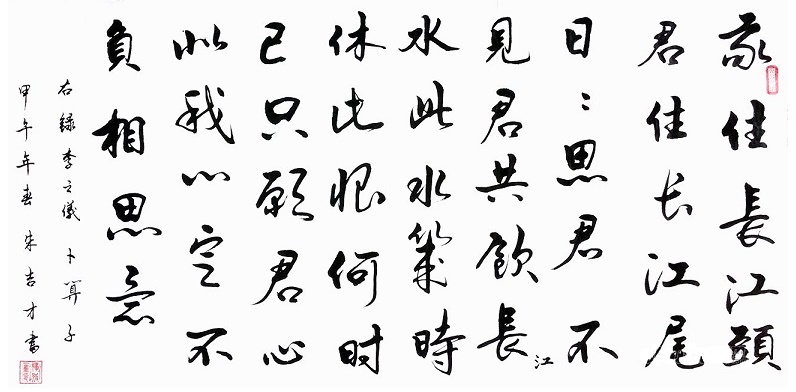 我住長江頭
君住长江尾
日〻思君不
見君共飲長江
水此水幾時
休此恨何时
已只願君心
似我心定不
負相思意
右録李之儀 卜算子
甲午年春 朱吉才書